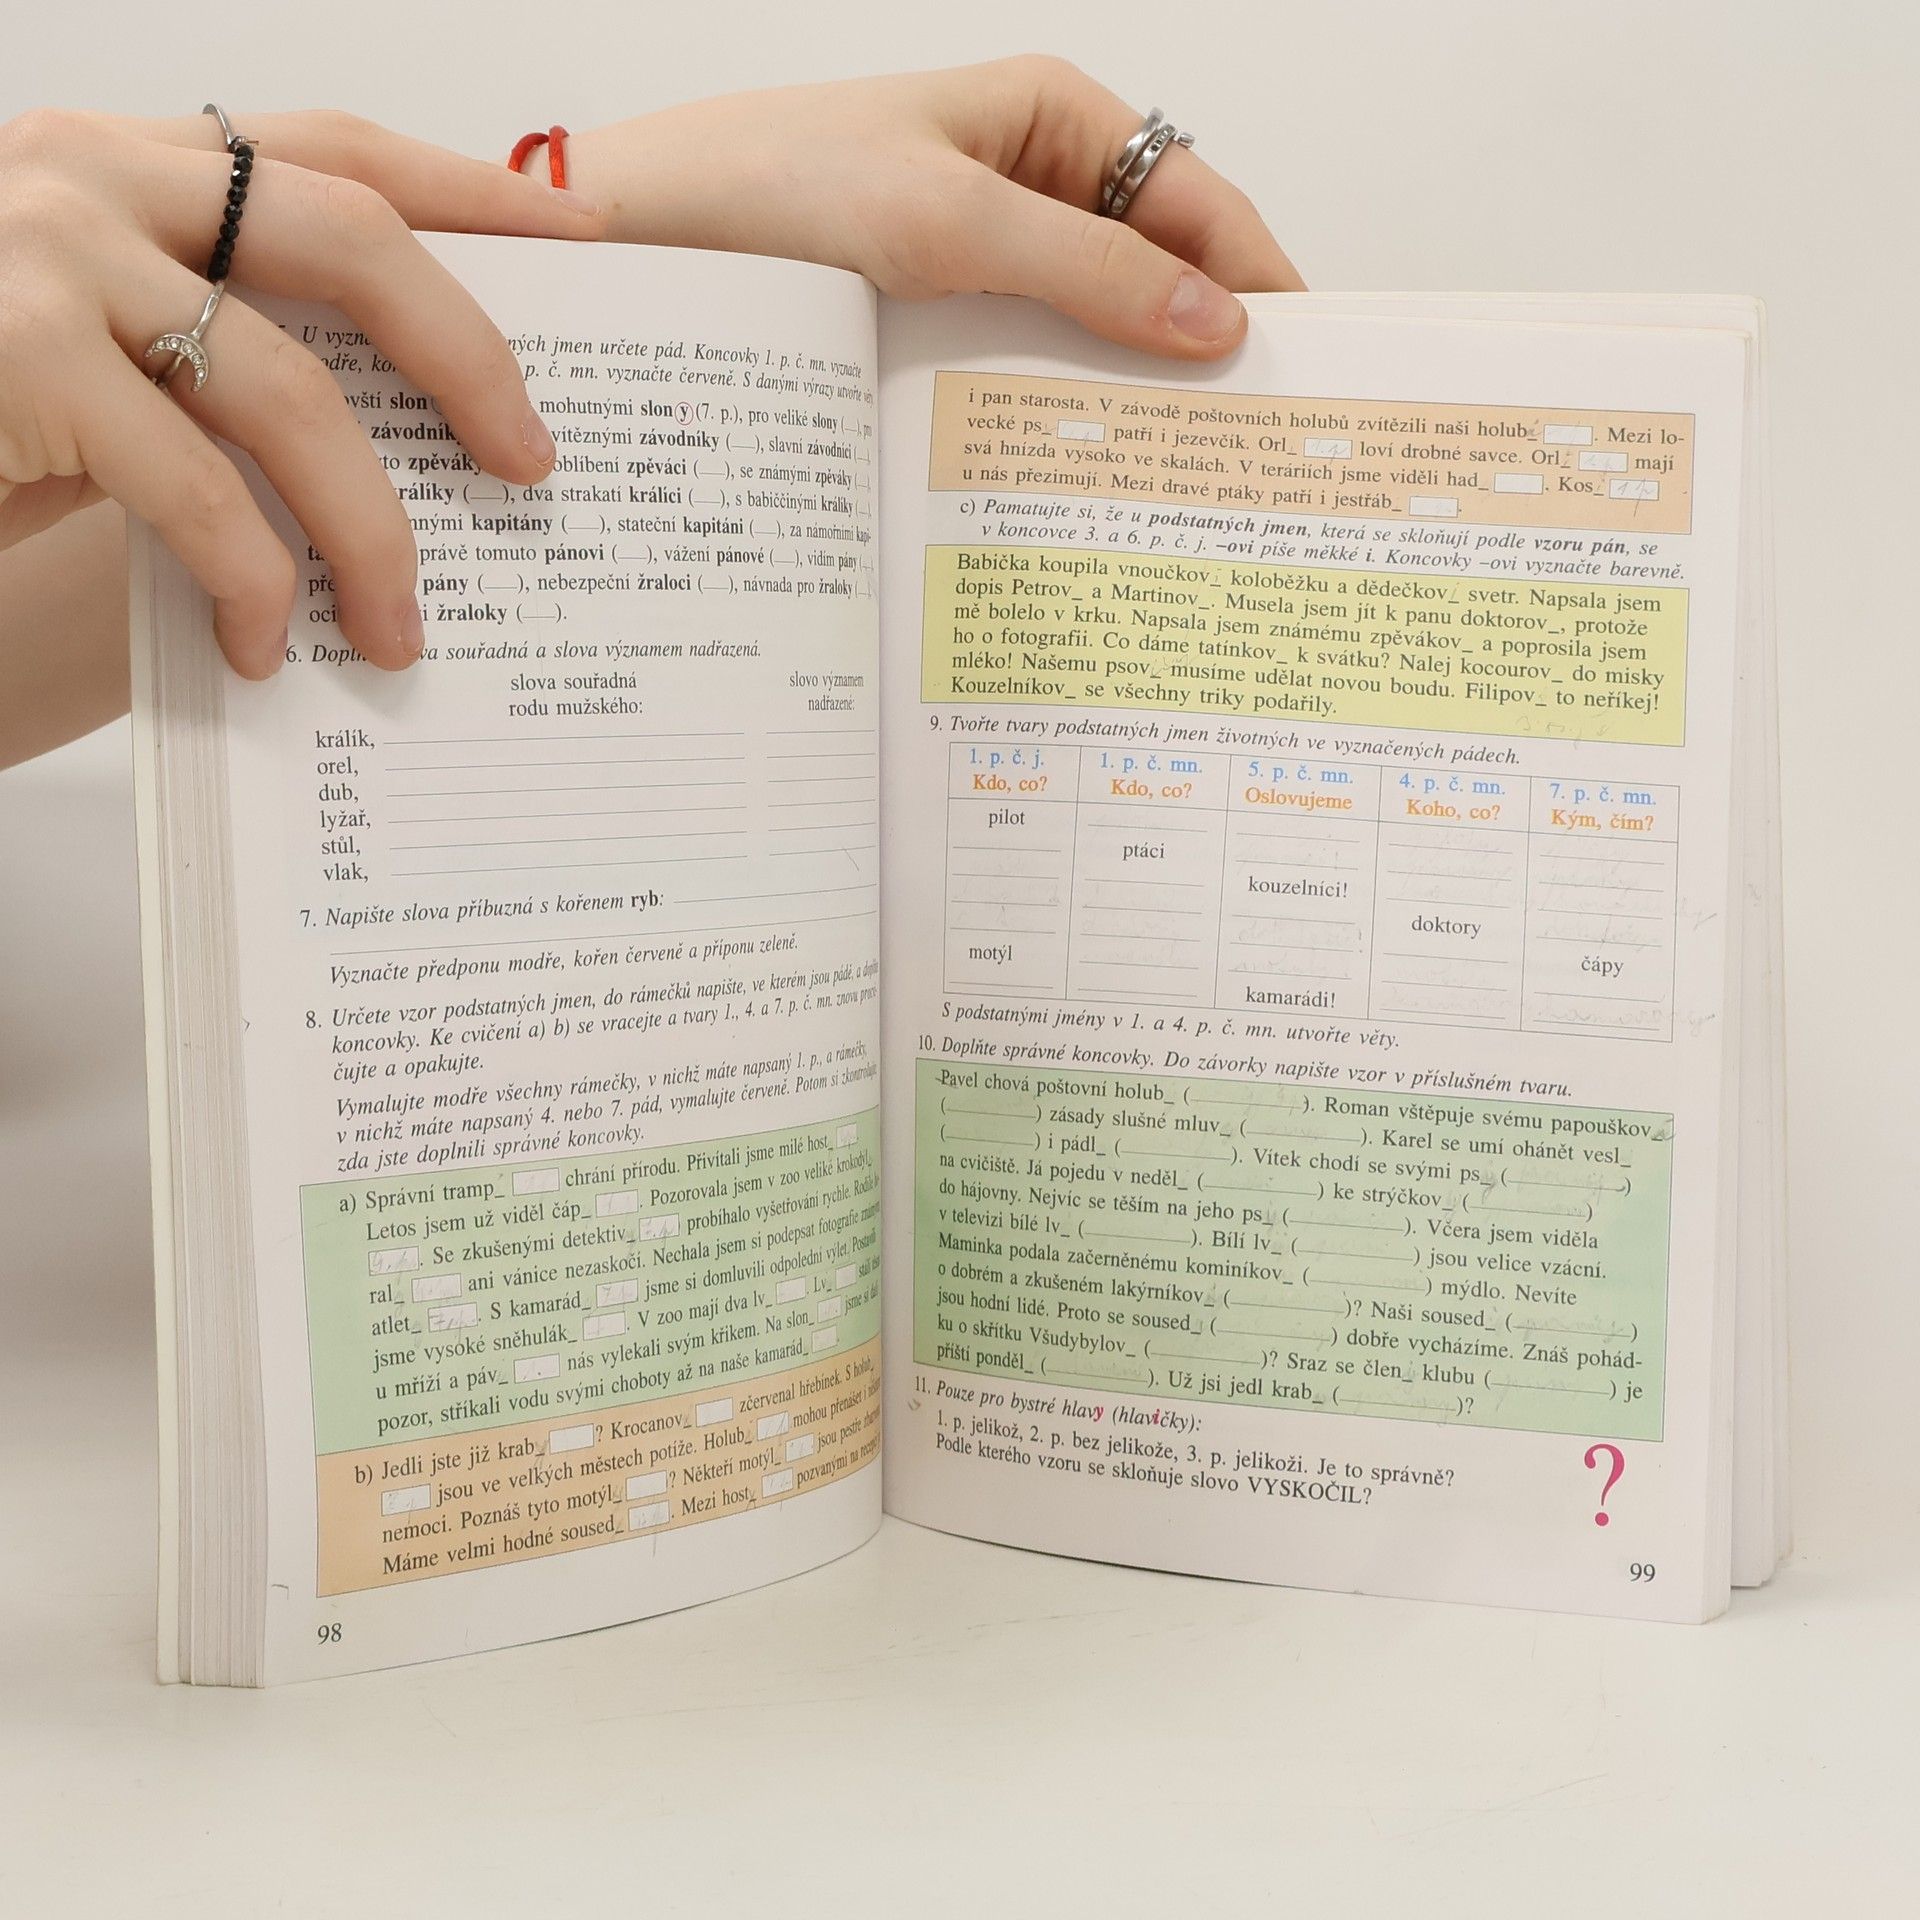 U
ných jmen určete pád. Koncovky 1. p. č. mn. vyznačte
p. č. mn. vyznačte červeně. S danými výrazy utvořte věty
slon mohutnými slony (7. p.), pro veliké slony (__), pro
vítěznými závodníky (__), slavní závodníci (__),
oblíbení zpěváci (__), se známými zpěváky (__),
(__), dva strakatí králíci (__), s babiččinými králíky (__),
kapitány (__), stateční kapitáni (__), za námořními kapi-
právě tomuto pánovi (__), vážení pánové (__), vidím pány (__),
pány (__), nebezpeční žraloci (__), návnada pro žraloky (__),
žraloky (__).
6. souřadná a slova významem nadřazená.
slova souřadná slovo významem
rodu mužského: nadřazené:
králík,
orel,
dub,
lyžař,
stůl,
vlak,
7. Napište slova příbuzná s kořenem ryb:
Vyznačte předponu modře, kořen červeně a příponu zeleně.
8. Určete vzor podstatných jmen, do rámečků napište, ve kterém jsou pádě, a doplňte
koncovky. Ke cvičení a) b) se vracejte a tvary 1., 4. a 7. p. č. mn. znovu procvi-
čujte a opakujte.
Vymalujte modře všechny rámečky, v nichž máte napsaný 1. p., a rámečky,
v nichž máte napsaný 4. nebo 7. pád, vymalujte červeně. Potom si zkontrolujte,
zda jste doplnili správné koncovky.
a) Správní tramp_ chrání přírodu. Přivítali jsme milé host_
Letos jsem už viděl čáp_ . Pozorovala jsem v zoo veliké krokodýl_
. Se zkušenými detektiv_ probíhalo vyšetřování rychle.
ral_ ani vánice nezaskočí. Nechala jsem si podepsat fotografie
atlet_ . S kamarád_ jsme si domluvili odpolední výlet. Postavili
jsme vysoké sněhulák_ . V zoo mají dva lv_ . Lv_ stáli
u mříží a páv_ nás vylekali svým křikem. Na slon_ jsme si dali
pozor, stříkali vodu svými choboty až na naše kamarád_ .
b) Jedli jste již krab_ ? Krocanov_ zčervenal hřebínek. S holub_
jsou ve velkých městech potíže. Holub_ mohou přenášet i
nemoci. Poznáš tyto motýl_ ? Někteří motýl_ jsou pestře
Máme velmi hodné soused_ . Mezi host_ pozvanými na
98
i pan starosta. V závodě poštovních holubů zvítězili naši holub_ . Mezi lo-
vecké ps_ patří i jezevčík. Orl_ loví drobné savce. Orl_ mají
svá hnízda vysoko ve skalách. V teráriích jsme viděli had_ . Kos_
u nás přezimují. Mezi dravé ptáky patří i jestřáb_ .
c) Pamatujte si, že u podstatných jmen, která se skloňují podle vzoru pán, se
v koncovce 3. a 6. p. č. j. –ovi píše měkké i. Koncovky –ovi vyznačte barevně.
Babička koupila vnoučkov_ koloběžku a dědečkov_ svetr. Napsala jsem
dopis Petrov_ a Martinov_. Musela jsem jít k panu doktorov_, protože
mě bolelo v krku. Napsala jsem známému zpěvákov_ a poprosila jsem
ho o fotografii. Co dáme tatínkov_ k svátku? Nalej kocourov_ do misky
mléko! Našemu psov_ musíme udělat novou boudu. Filipov_ to neříkej!
Kouzelníkov_ se všechny triky podařily.
9. Tvořte tvary podstatných jmen životných ve vyznačených pádech.
1. p. č. j. 1. p. č. mn. 5. p. č. mn. 4. p. č. mn. 7. p. č. mn.
Kdo, co? Kdo, co? Oslovujeme Koho, co? Kým, čím?
pilot
ptáci
kouzelníci!
doktory
motýl čápy
kamarádi!
S podstatnými jmény v 1. a 4. p. č. mn. utvořte věty.
10. Doplňte správné koncovky. Do závorky napište vzor v příslušném tvaru.
Pavel chová poštovní holub_ (__). Roman vštěpuje svému papouškov_
(__) zásady slušné mluv_ (__). Karel se umí ohánět vesl_
(__) i pádl_ (__). Vítek chodí se svými ps_ (__)
na cvičiště. Já pojedu v neděl_ (__) ke strýčkov_ (__)
do hájovny. Nejvíc se těším na jeho ps_ (__). Včera jsem viděla
v televizi bílé lv_ (__). Bílí lv_ (__) jsou velice vzácní.
Maminka podala začerněnému kominíkov_ (__) mýdlo. Nevíte
o dobrém a zkušeném lakýrníkov_ (__)? Naši soused_ (__)
jsou hodní lidé. Proto se soused_ (__) dobře vycházíme. Znáš pohád-
ku o skřítku Všudybylov_ (__)? Sraz se člen_ klubu (__) je
příští ponděl_ (__). Už jsi jedl krab_ (__)?
11. Pouze pro bystré hlavy (hlavičky):
1. p. jelikož, 2. p. bez jelikože, 3. p. jelikoži. Je to správně?
Podle kterého vzoru se skloňuje slovo VYSKOČIL?
?
99